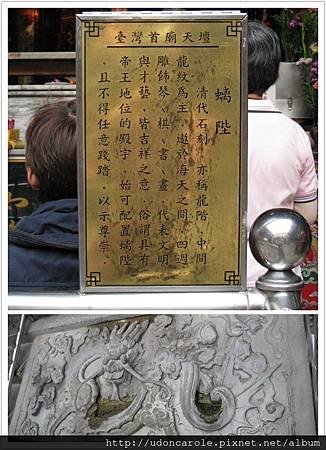 臺灣首廟天壇
螭陛
清代石刻,亦稱龍階,中間
龍紋為主,遨於海天之間,四週
雕飾琴、棋、書、畫,代表文明
與才藝,皆吉祥之意,俗謂具有
帝王地位的殿宇,始可配置螭陛
,且不得任意踐踏,以示尊崇。
http://udoncarole.pixnet.net/album